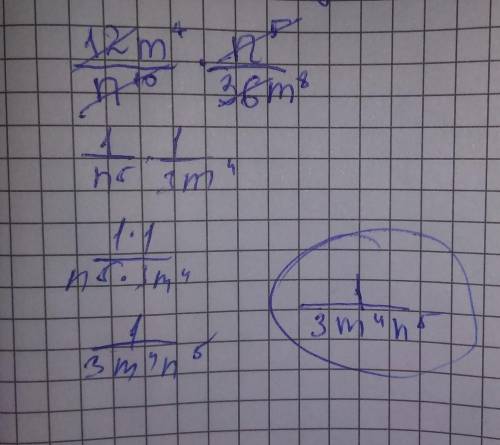 12m⁴/n¹⁰ · n⁵/36m⁸
1/n⁵ · 1/3m⁴
1·1/n⁵·3m⁴
1/3m⁴n⁵
1/3m⁴n⁵